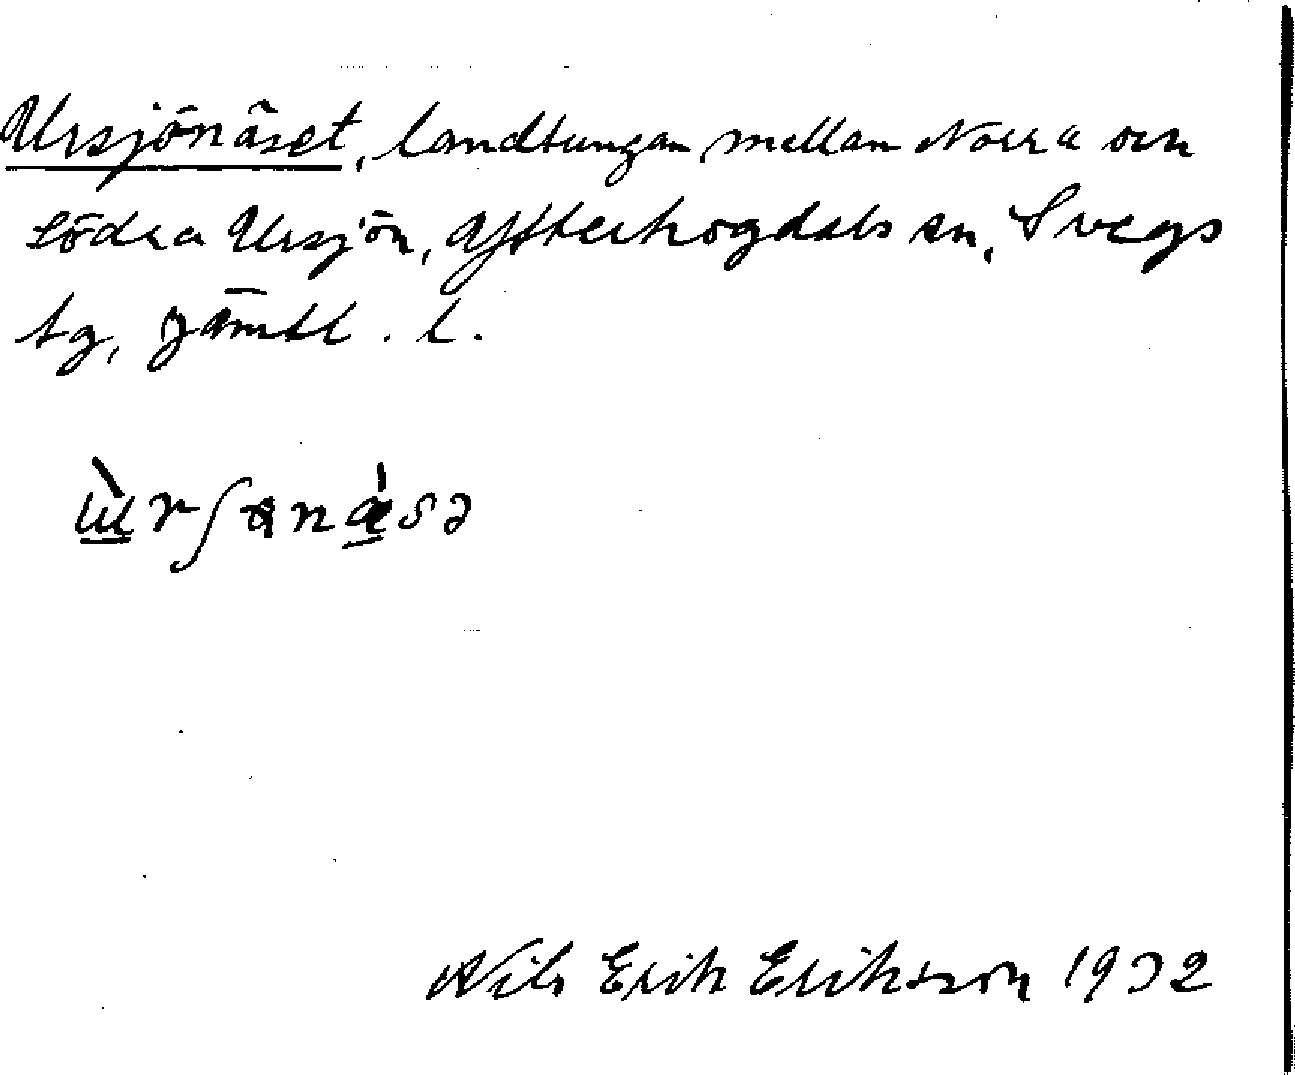 Ursjönäset, landtungan mellan Norra och
södra Ursjön, Ytterhogdals sn, Svegs
tg, Jämtl. l.
Nils Erik Eriksson 1932